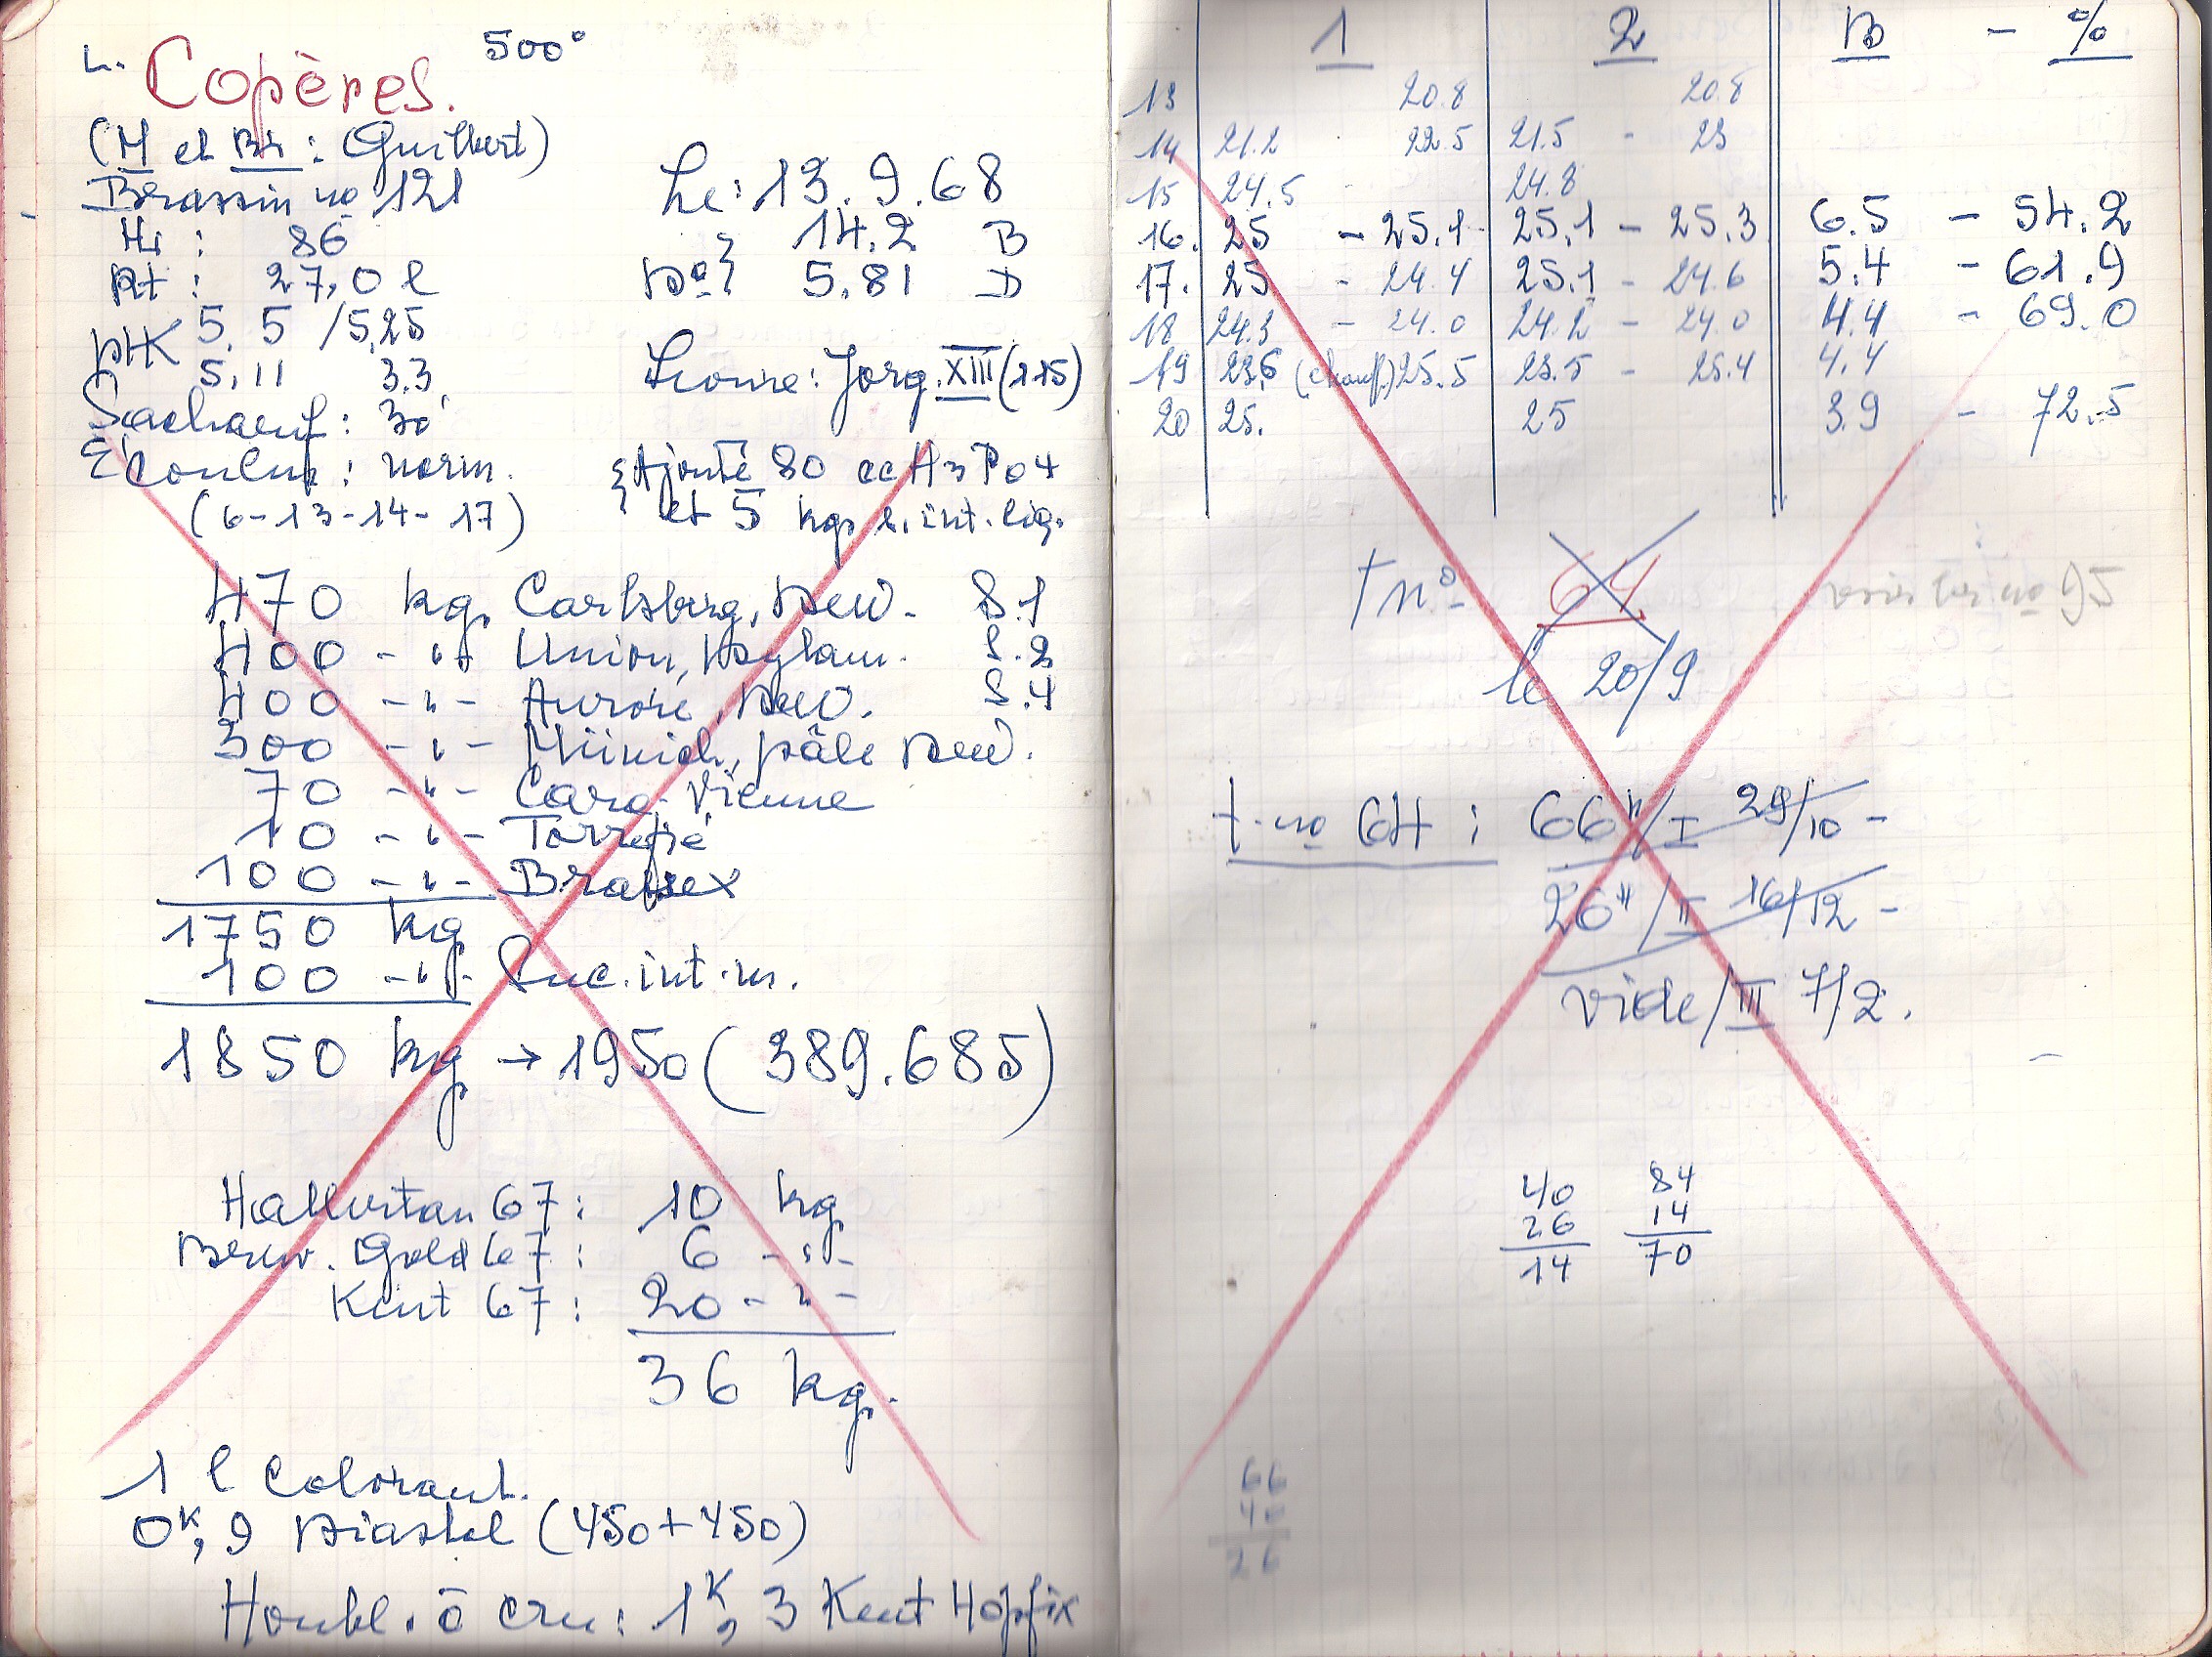 L. Copères. 500°
(M et Br : Guilbert)
Brassin no 121
Le : 13.9.68
Hl : 86
14.2 B
Rt : 27,0 l
D°} 5.81 D
pHK 5.5 / 5,25
5.11 3.3
Levure : Jorg. XIII (115)
Sacharif : 30'
Ecoulmt : norm.
(6-13-14-17)
{Ajouté 80 cc H3PO4
et 5 kgs s. int. liq.
470 kg. Carlsberg, Dew. S.1
400 - " - Union, S.2
400 - " - Aurore, Dew. S.4
300 - " - Münich, pâle Dew.
70 - " - Cara-Vienne
10 - " - Torréfié
100 - " - Brassex
1750 kg
100 - " - Suc. int. m.
1850 kg → 1950 (389.685)
Hallertau 67 : 10 kg
Brew. Gold 67 : 6 - " -
Kent 67 : 20 - " -
36 kg.
1 l Colorant.
0K,9 Diastel (450+450)
Houbl. à cru : 1K,3 Kent Hopfix
1 2 B - %
13 20.8 20.8
14 21.2 22.5 21.5 - 23
15 24.5 - 24.8
16. 25 - 25.1 25.1 - 25.3 6.5 - 54.2
17. 25 - 24.4 25.1 - 24.6 5.4 - 61.9
18 24.3 - 24.0 24.2 - 24.0 4.4 - 69.0
19 23,6 (chauf.) 25.5 23.5 - 25.4 4.4
20 25. 25 3.9 - 72.5
t n° 64
voir no 95
le 20/9
t. no 64 : 66"/I 29/10 -
26"/II 16/12 -
vide/III 7/2.
40 84
26 14
14 70
66
40
26